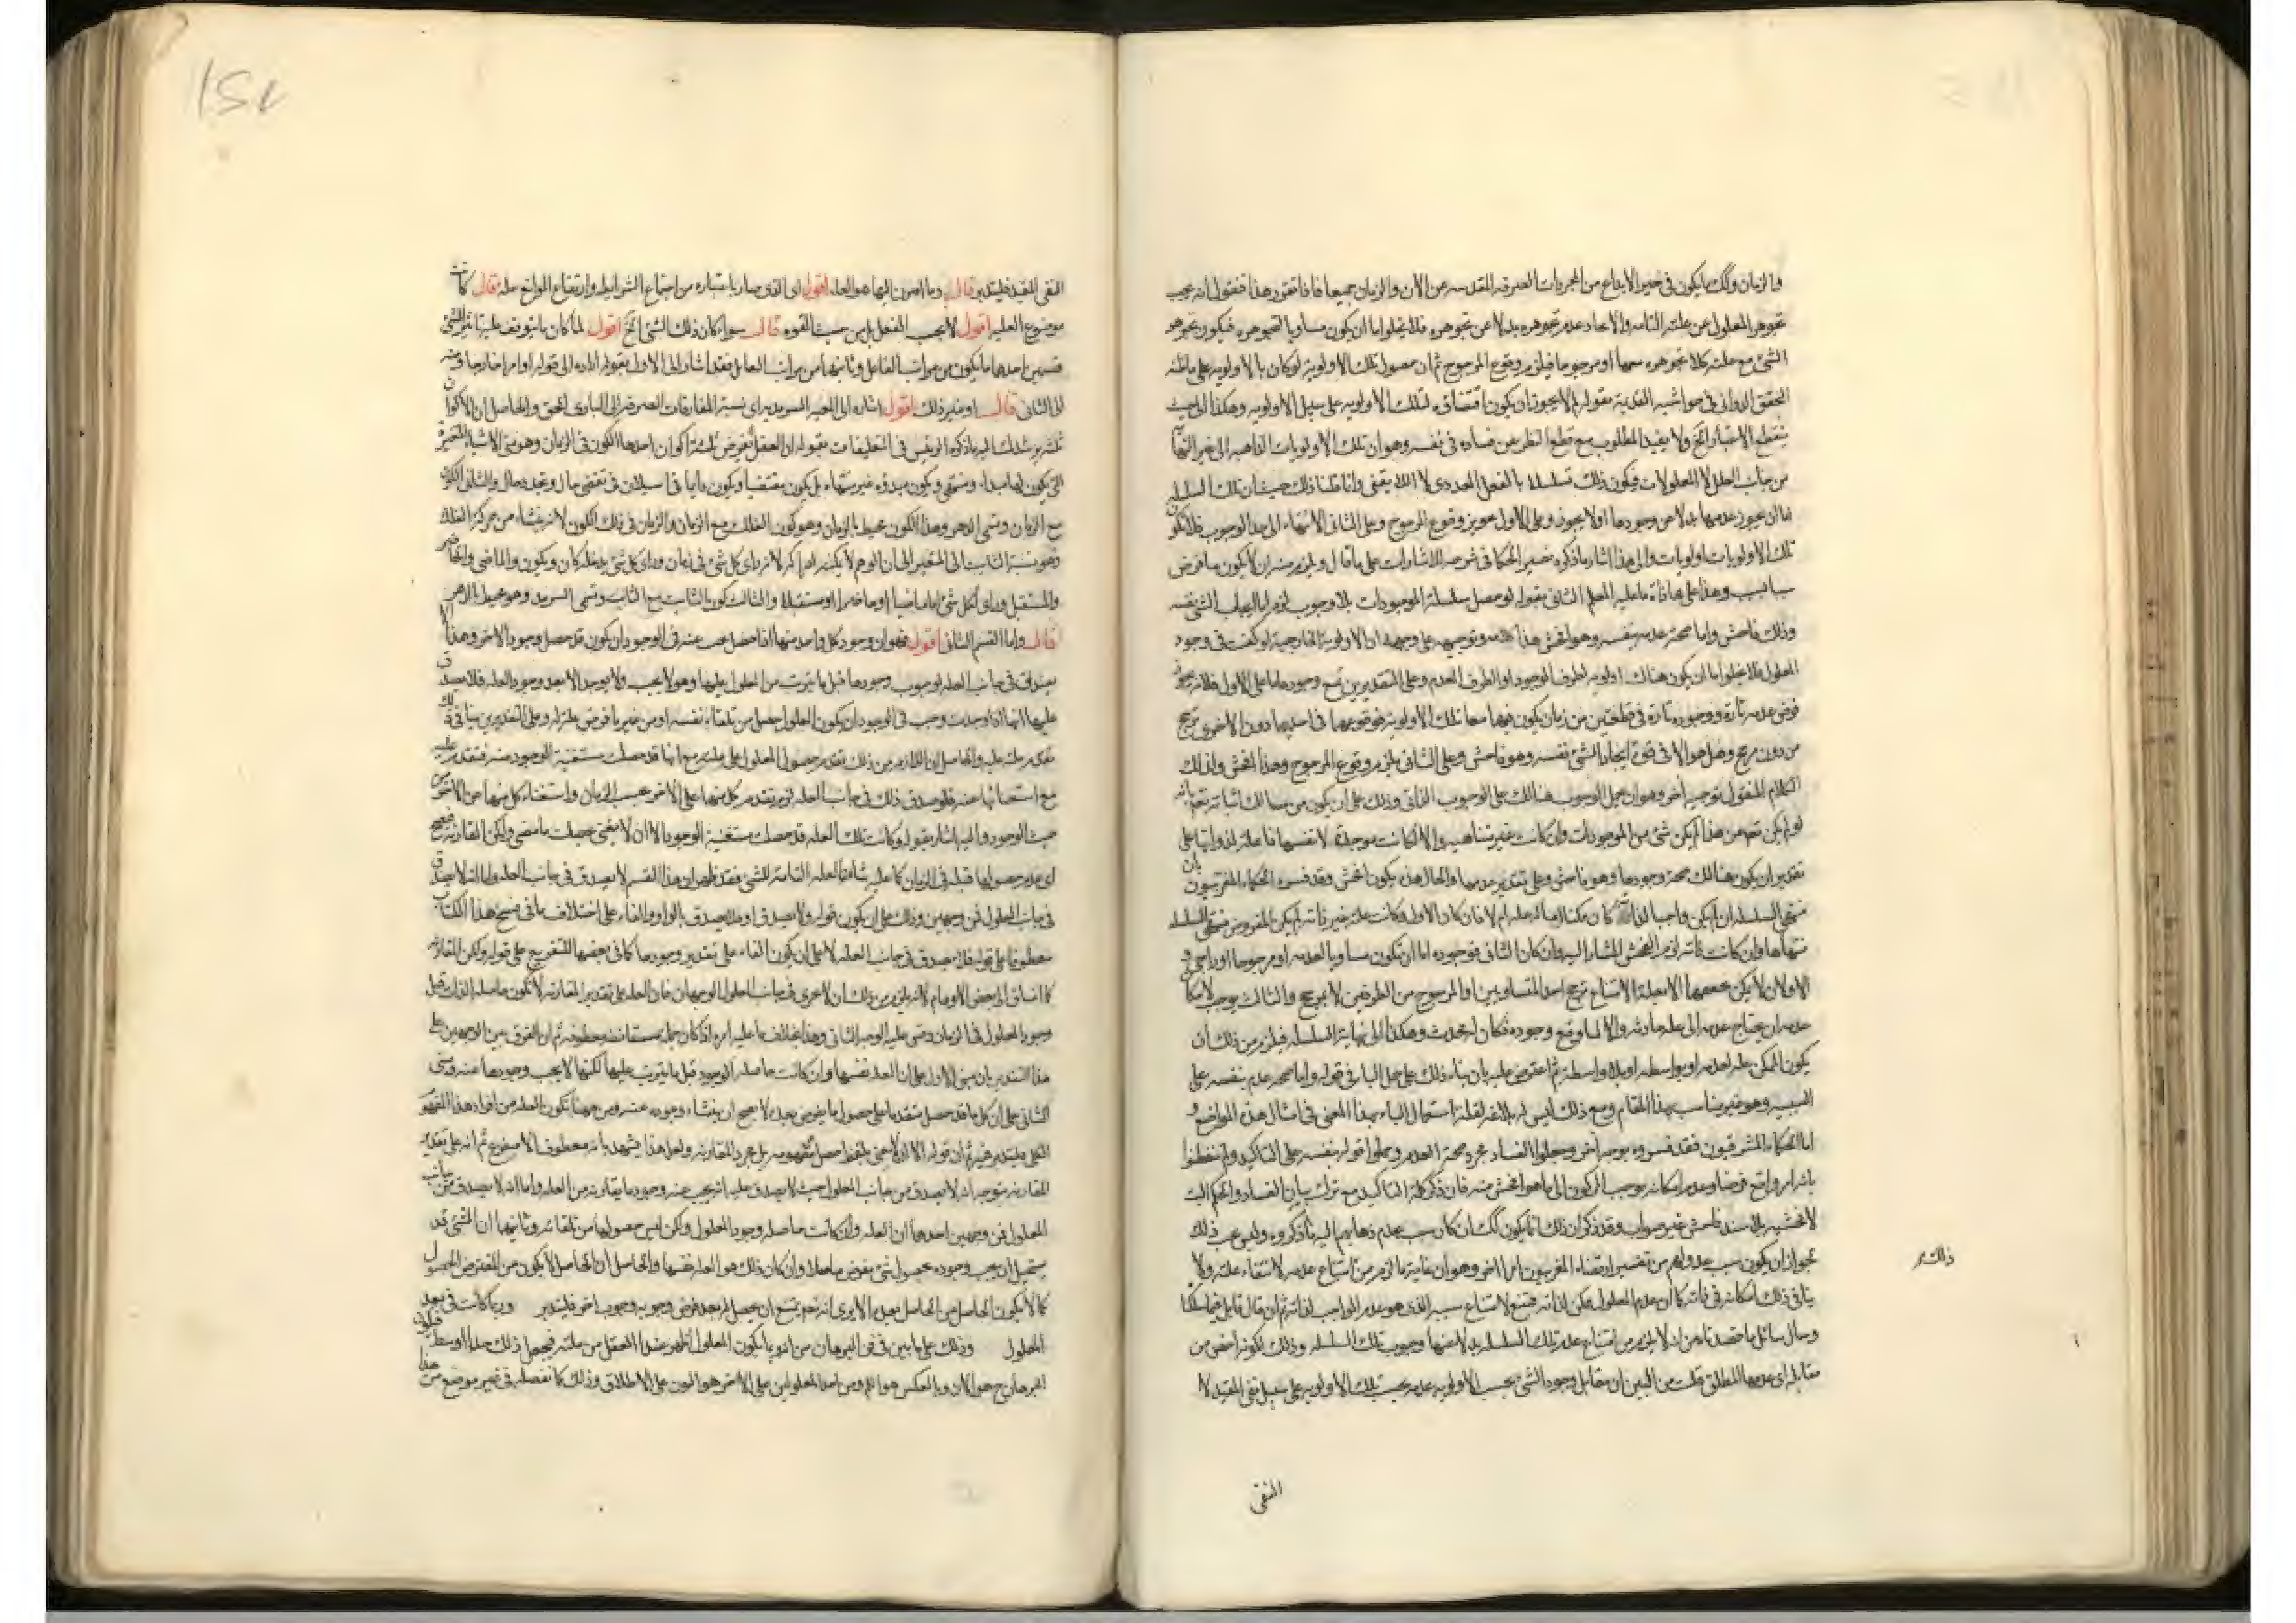 والزمان وذلك ما يكون في حيز الابداع من المجردات الصرفة المقدسه عن الآن والزمان جميعا فاذا تقرر هذا فنقول انه يجب
تجوهر المعلول عن علته التامه والا لجاز عدم تجوهره بدلا عن تجوهره فلا يخلوا ما ان يكون مساويا لتجوهره فيكون تجوهر
الشئ مع علته كلا تجوهره معها او مرجوحا فيلزم وقوع المرجوح ثم ان حصول تلك الاولوية لو كان بالاولويه على ما ظنه
المحقق الدواني في حواشيه القديمة بقوله لم لا يجوز ان يكون اقتضاؤه لتلك الاولويه على سبيل الاولويه وهكذا الى حيث
ينقطع الاعتبار الخ ولا يفيد المطلوب مع قطع النظر عن فساده في نفسه وهو ان تلك الاولويات الذاهبه الى غير النهايه
من جانب العلل لا المعلولات فيكون ذلك تسلسلا بالفعل العددى لا اللا يقفى وانما قلنا ذلك حيث ان تلك السلسله
اما ان يجوز عدمها بدلا عن وجودها او لا يجوز وعلى الاول تجويز وقوع المرجوح وعلى الثاني الانتهاء الى حد الوجوب فلا يكون
تلك الاولويات اولويات والى هذا اشار ما ذكره نصير الحكما في شرحه للاشارات على ما قال ويلزم منه ان لا يكون ما فرض
سببا بسبب وهذا على محاذاة ما عليه المعلم الثاني بقوله لو حصل سلسلة الموجودات بلا وجوب لزم اما ايجاب الشئ نفسه
وذلك فاحش واما صحة عدمه بنفسه وهو افحش هذا وتوجيهه على وجهه ان الاولوية الخارجية لو كفت في وجود
المعلول فلا يخلوا اما ان يكون هناك اولويه لطرف الوجود او لطرف العدم وعلى التقديرين وجودها اما على الاول فلانه يجوز
فرض عدمه تارة ووجوده تارة في قطعتين من زمان يكون فيها معا تلك الاولوية فوقوعها في احديهما دون الاخرى ترجح
من دون مرجح وهل هو الا في قوة ايجاد الشئ نفسه وهو فاحش وعلى الثاني يلزم وقوع المرجوح وهذا افحش ولذلك
الكلام المنقول توجيه آخر وهو ان يحمل الوجوب هنالك على الوجوب الذاتي وذلك على ان يكون من مسالك اثباته تعالى بانه
لو لم يكن تعين هذا لم يكن شئ من الموجودات وان كانت غير متناهيه والا لكانت موجدة لانفسها فاعلة لذواتها على
تقدير ان يكون هنالك صحة وجودها وهو فاحش وعلى تقدير عدمها والحال هذه يكون افحش وقد فسره الحكماء المغربيون بان
منتهى السلسله ان لم يكن واجبا لذاته كان ممكنا له علة ام لا فان كان الاول وكانت علة غير ذاته لم يكن المفروض منتهى السلسله
منتهاها وان كانت ذاته لزم الفحش المشار اليه وان كان الثاني فوجوده اما ان تكون مساويا لعدمه او مرجوحا او راجحا و
الاولان لا يمكن معهما الا بعلة لامتناع ترجح احد المتساويين او المرجوح من الطرفين لا بمرجح والثالث يوجب لامكان
عدمه ان يحتاج عدمه الى علة حادثه والا لما وقع وجوده فكان لم يحدث وهكذا الى نهاية السلسله فيلزم من ذلك ان
يكون الممكن علة لعدمه او بواسطه او بلا واسطة ثم اعترض عليه بان بناء ذلك على حمل الباء في قوله واما صحة عدمه بنفسه على
السببيه وهو غير مناسب بهذا المقام ومع ذلك ليس له بلاغه لقلة استعمال الباء بهذا المعنى في امثال هذه المواضع و
اما الحكماء المشرقيون فقد فسروه بوجه آخر وجعلوا الفساد مجرد صحة العدم وحملوا قوله بنفسه على التاكيد ولم يتفطنوا
لافحشيه بلا سند فاحش غير صواب وقد ذكر ان ذلك انما يكون كذلك ان كان سبب عدم ذهابهم اليه ما ذكروه وليس يجب ذلك
لجواز ان يكون سبب عدولهم من تفسير ارتضاه المغربيون امرا آخر وهو ان غاية ما لزم من امتناع عدمه لانتفاء علته ولا
ينافي ذلك امكانه في ذاته كما ان عدم المعلول ممكن لذاته ممتنع لامتناع سببه الذي هو عدم الواجب لذاته ثم ان قال قايل
وسال سائل ما حصلنا من انه لا يلزم من امتناع عدم تلك السلسله بدلا عنها وجوب تلك السلسله وذلك لكونه اخص من
مقابله اي عدمها المطلق قلت من البين ان مقابل وجود الشئ بحسب الاولويه عدمه بحسب تلك الاولويه على سبيل نفي المقيد لا
ذلك
النفي
النفي المقيد فليتدبر قال وما اضيف اليها هو العلة اقول اي الذي صار باعتباره من اجتماع الشرائط وارتفاع الموانع علة قال كانت
موضوع العليه اقول لا يجب الفعل بل من حيث القوه قال سواء كان ذلك الشئ الخ اقول لما كان ما يتوقف عليه تاثير الشئ
قسمين احدهما ما يكون من مراتب الفاعل وثانيهما من مراتب القابل فقد اشار الى الاول بقوله اراده الى قوله او امر خارجا ومنه
الى الثاني قال او غير ذلك اقول اشاره الى المعيه السرمديه اي نسبة المفارقات الصرفة الى البارى الحق والحاصل ان الاكوان
ثلثه يرشدك اليه ما ذكره الرئيس في التعليقات بقوله ان العقل يفرض ثلثة اكوان احدها الكون في الزمان وهو متى الاشياء المتغيرة
التي يكون لها مبداء ومنتهى ويكون مبدؤه غير منتهاه بل يكون مقتضيا ويكون دايما في السيلان في تقضى حال وتجدد حال والثاني الكون
مع الزمان وتسمى الدهر وهذا الكون محيط بالزمان وهو كون الفلك مع الزمان والزمان في ذلك الكون لانه ينشاء من حركة الفلك
وهو نسبة الثابت الى المتغير الا ان الوهم لا يمكنه ادراكه لانه راى كل شئ في زمان وراى كل شئ يدخله كان ويكون والماضى والحاضر
والمستقبل وراى لكل شئ اما ماضيا او حاضرا او مستقبلا والثالث كون الثابت مع الثابت وتسمى السرمد وهو محيط بالدهر
قال واما القسم الثاني اقول فهو ان وجود كل واحد منهما اذا حصل يجب عنه في الوجود ان يكون قد حصل وجود الآخر وهذا
يصدق في جانب العله لوجوب وجودها قبل ما يترتب من المعلول عليها وهو لا يجب ولا يوجد الا بعد وجود العله فلا يصدق
عليها انها اذا وجدت وجب في الوجود ان يكون المعلول حصل من تلقاء نفسه او من غير ما فرض علة له وعلى التقديرين ينافي ذلك
تقدم علته عليه والحاصل ان اللازم من ذلك تقدم حصول المعلول على علته مع انها قد حصلت مستغنية الوجود منه فتقدم عليه
مع استغنائها عنه فلو صدق ذلك في جانب العله لزم تقدم كل منهما على الآخر بحسب الزمان واستغناء كل منهما عن الآخر من
حيث الوجود واليه اشار بقوله وكانت تلك العله قد حصلت مستغنية الوجود الا ان لا يعنى بحصلت ما مضى ولكن المقارنة فيصح
اي عدم حصولها قبله في الزمان كما عليه شاكلة العله التامة للشئ فقد ظهر ان هذا القسم لا يصدق في جانب العله واما انه لا يصدق
في جانب المعلول فمن وجهين وذلك على ان يكون قوله ولا يصدق او فلا يصدق بالواو والفاء على اختلاف ما في نسخ هذا الكتاب
معطوفا على قوله فلا يصدق في جانب العله لا على ان يكون الفاء على تقدير وجودها كما في بعضها للتفريع على قوله ولكن المقارنه
كما انساق الى بعض الاوهام لانه يلزم من ذلك ان لا يجرى في جانب المعلول الوجهان فان العله على تقدير المقارنه لا تكون حاصله الذات قبل
وجود المعلول في الزمان وقس عليه الوجه الثاني وهذا بخلاف ما عليه امره اذا كان جملة مستانفه معطوفه ثم ان الفرق بين الوجهين على
هذا التقدير بان مبنى الاول على ان العله نفسها وان كانت حاصله الوجود قبل ما يترتب عليها لكنها لا يجب وجودها عنه ومبنى
الثاني على ان كل ما قد حصل متقدما على حصول ما يفرض بعده لا يصح ان ينشاء وجوده عنه ومن هنا تكون العله من افراد هذا المفهوم
الكلي فليتدبر فيه ثم ان قوله الا ان لا يعنى بلفظ حصل مفهومه بل مجرد المقارنه ولعل هذا يشهد بانه معطوف لا متفرع ثم انه على تقدير
المقارنه يتوجه انه لا يصدق من جانب المعلول حيث لا يصدق عليه انه يجب عنه وجود ما يقارنه من العله واما انه لا يصدق من جانب
المعلول فمن وجهين احدهما ان العله وان كانت حاصله وجود المعلول ولكن ليس حصولها من تلقائه وثانيهما ان الشئ قد
يستحيل ان يجب وجوده بحصول شئ يفرض حاصلا وان كان ذلك هو العله نفسها والحاصل ان الحاصل لا يكون من المفترض الحصول
كما لا يكون الحاصل من الحاصل بعده الا يرى انه نعم يمتنع ان يحصل امر بعد فرض وجوبه وجوب آخر فليتدبر وربما كانت في بعد
المعلول وذلك على ما بين في فن البرهان من انه ربما يكون المعلول اظهر عند العقل من علته فيجعل ذلك حدا اوسط فيكون
البرهان ح هو الان وبالعكس هو اللم ومن احد المعلولين على الآخر هو الان على الاطلاق وذلك كما نفصله في غير موضع من هذا